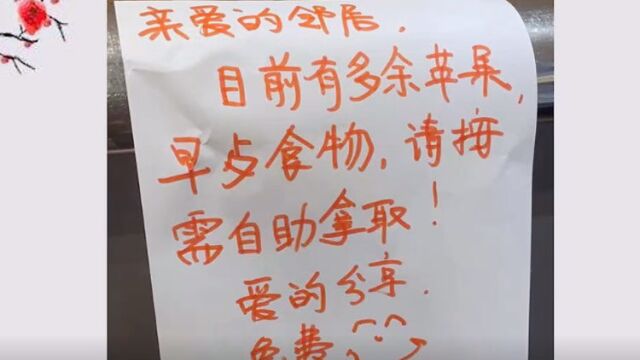 亲爱的邻居,
目前有多余苹果,
早歺食物,请按
需自助拿取!
爱的分享.
免费